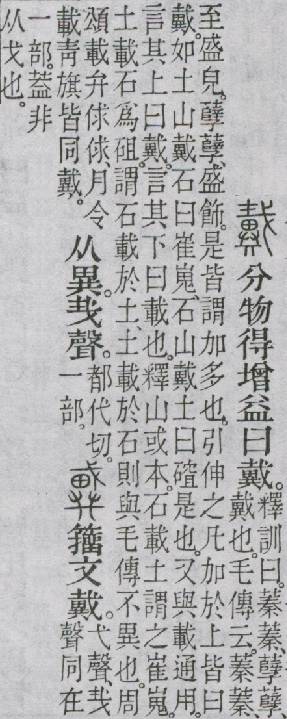 戴 分物得增益曰戴。
釋訓曰。蓁蓁、孽孽、
戴也。毛傳云。蓁蓁、
至盛皃。孽孽、盛飾。是皆謂加多也。引伸之凡加於上皆曰
戴。如土山戴石曰崔嵬、石山戴土曰磪是也。又與載通用。
言其上曰戴。言其下曰載也。釋山或本。石載土謂之崔嵬。
土載石爲砠。謂石載於土、土載於石則與毛傳不異也。周
頌載弁俅俅、月令
載靑旗皆同戴。
从異𢦏聲。
都代切。
一部。
籒文戴。
弋聲、𢦏
聲同在
一部。葢非
从戈也。